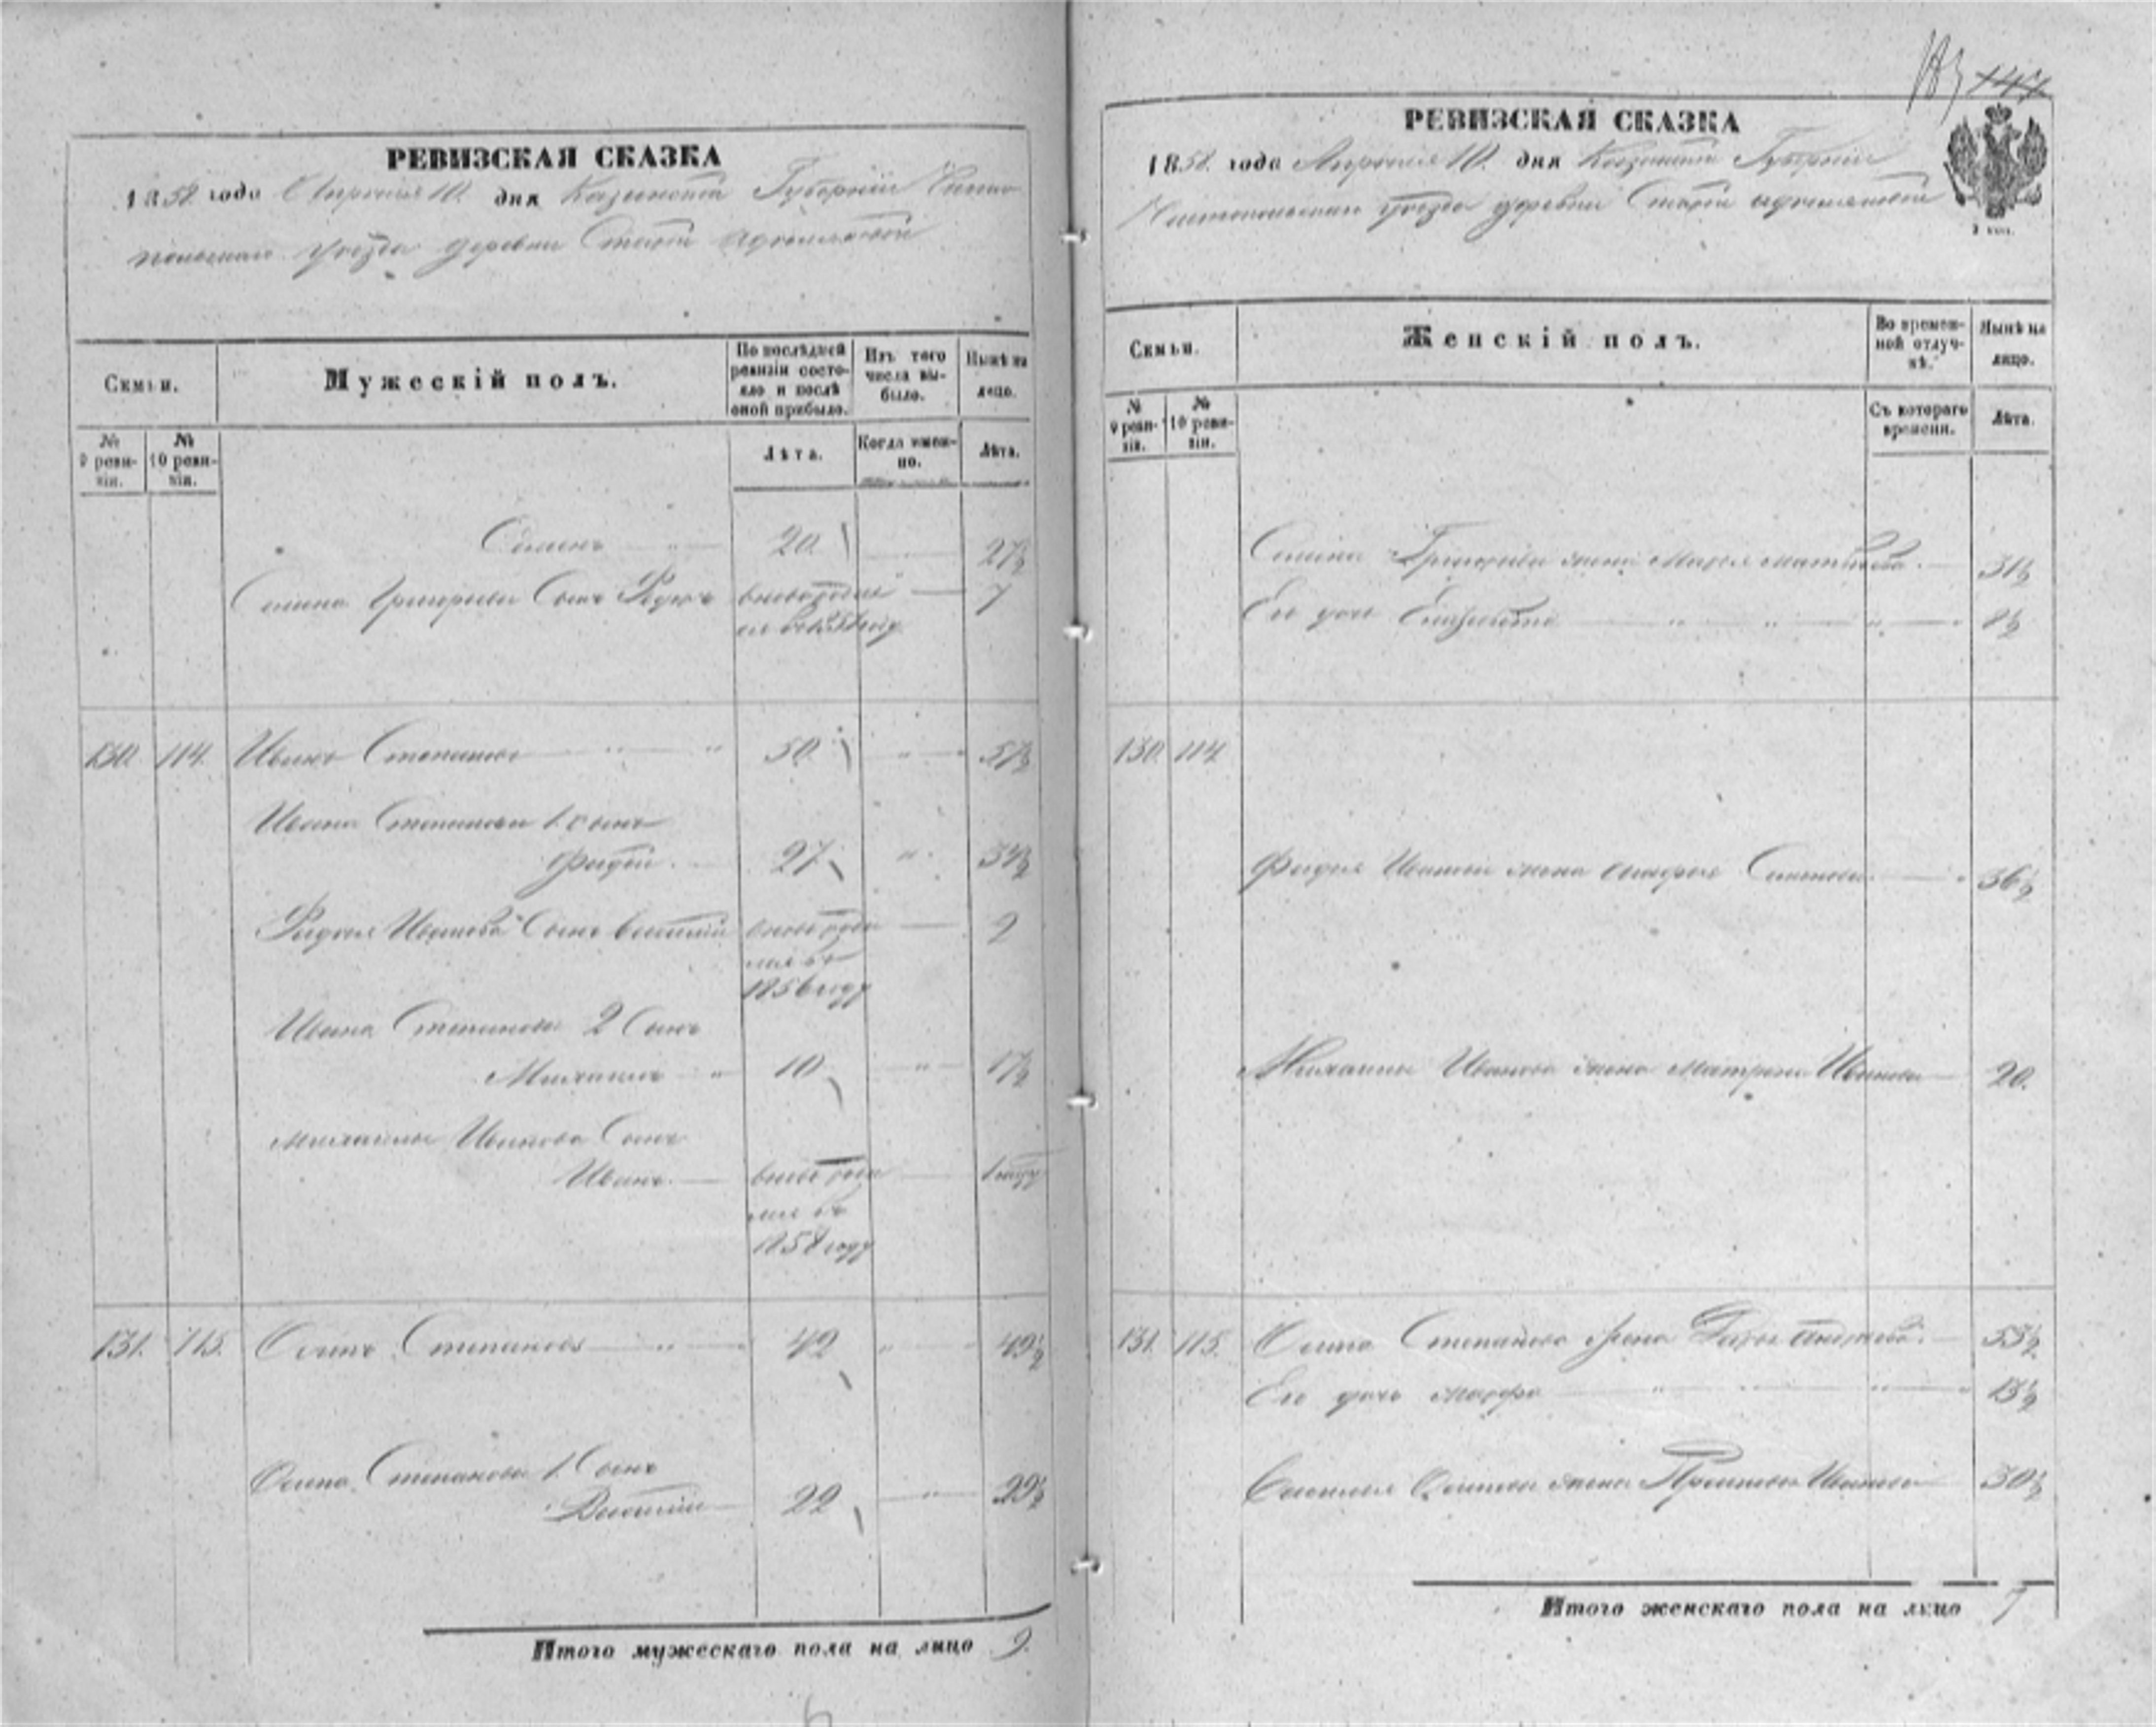 147
РЕВИЗСКАЯ СКАЗКА
1858 года Апреля 10. дня Казанской Губерніи Чисто-
польскаго уезда деревни Старой
Семьи.
Мужескій полъ.
По послѣдней ревизіи состояло и послѣ оной прибыло.
Изъ того числа выбыло.
Нынѣ на лицо.
№ 9 ревизіи.
№ 10 ревизіи.
Лѣта.
Когда именно.
Лѣта.
Семенъ 20. 27½
Семена Григорьева Сынъ вновьрожден 7
130. 114. Иванъ Степановъ 50. 57½
Ивана Степанова 1. сынъ
Фадей 27 34½
Фадея Иванова Сынъ Василій вновь рожден 2
1856 году
Ивана Степанова 2 Сынъ
Михаилъ 10 17½
Михаилы Иванова Сынъ
Иванъ вновь рож
1858 году
131. 115. Осипъ Степановъ 42 49½
Осипа Степанова 1. Сынъ
Василій 22 29½
Итого мужескаго пола на лицо 9.
РЕВИЗСКАЯ СКАЗКА
1858. года Апреля 10. дня Казанской Губерніи
Чистопольскаго уезда деревни Старой
Семьи.
Женскій полъ.
Во временной отлучкѣ.
Нынѣ на лицо.
№ 9 ревизіи.
№ 10 ревизіи.
Съ котораго времени.
Лѣта.
Семена Григорьева жена Марья Матвѣева 31½
Его дочь 8½
130. 114
Фадея Иванова жена 36½
Михаилы Иванова жена Матрена Иванова 20.
131. 115. Осипа Степанова жена Дарья 53½
Его дочь Марфа 13½
Василья Осипова жена Иванова 30½
Итого женскаго пола на лицо 7